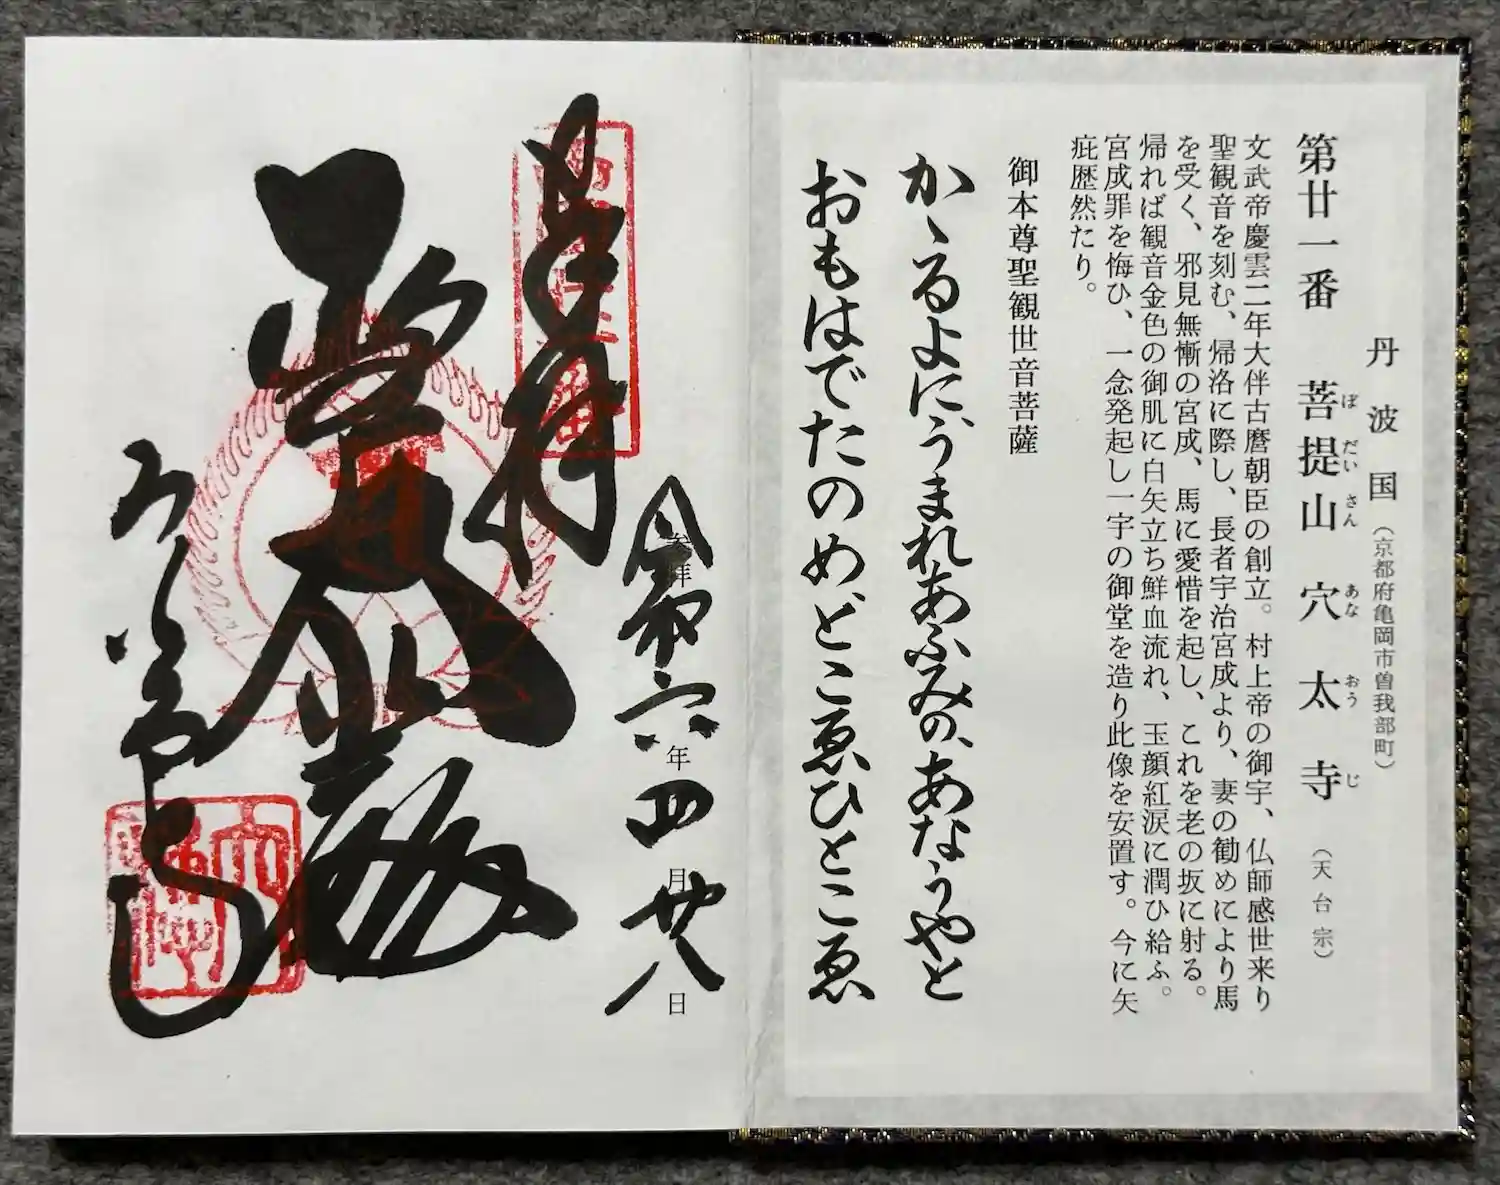 丹波国（京都府亀岡市曽我部町）
第廿一番　菩提山　穴太寺（天台宗）
ぼだいさん　あなおうじ
文武帝慶雲二年大伴古麿朝臣の創立。村上帝の御宇、仏師感世来り
聖観音を刻む、帰洛に際し、長者宇治宮成より、妻の勧めにより馬
を受く、邪見無慚の宮成、馬に愛惜を起し、これを老の坂に射る。
帰れば観音金色の御肌に白矢立ち鮮血流れ、玉顔紅涙に潤ひ給ふ。
宮成罪を悔ひ、一念発起し一宇の御堂を造り此像を安置す。今に矢
疵歴然たり。
御本尊聖観世音菩薩
かゝるよに、うまれあふみの、あなうやと
おもはでたのめ、とこゑひとこゑ
奉拝
参拝
令和六年四月廿八日
聖大悲殿